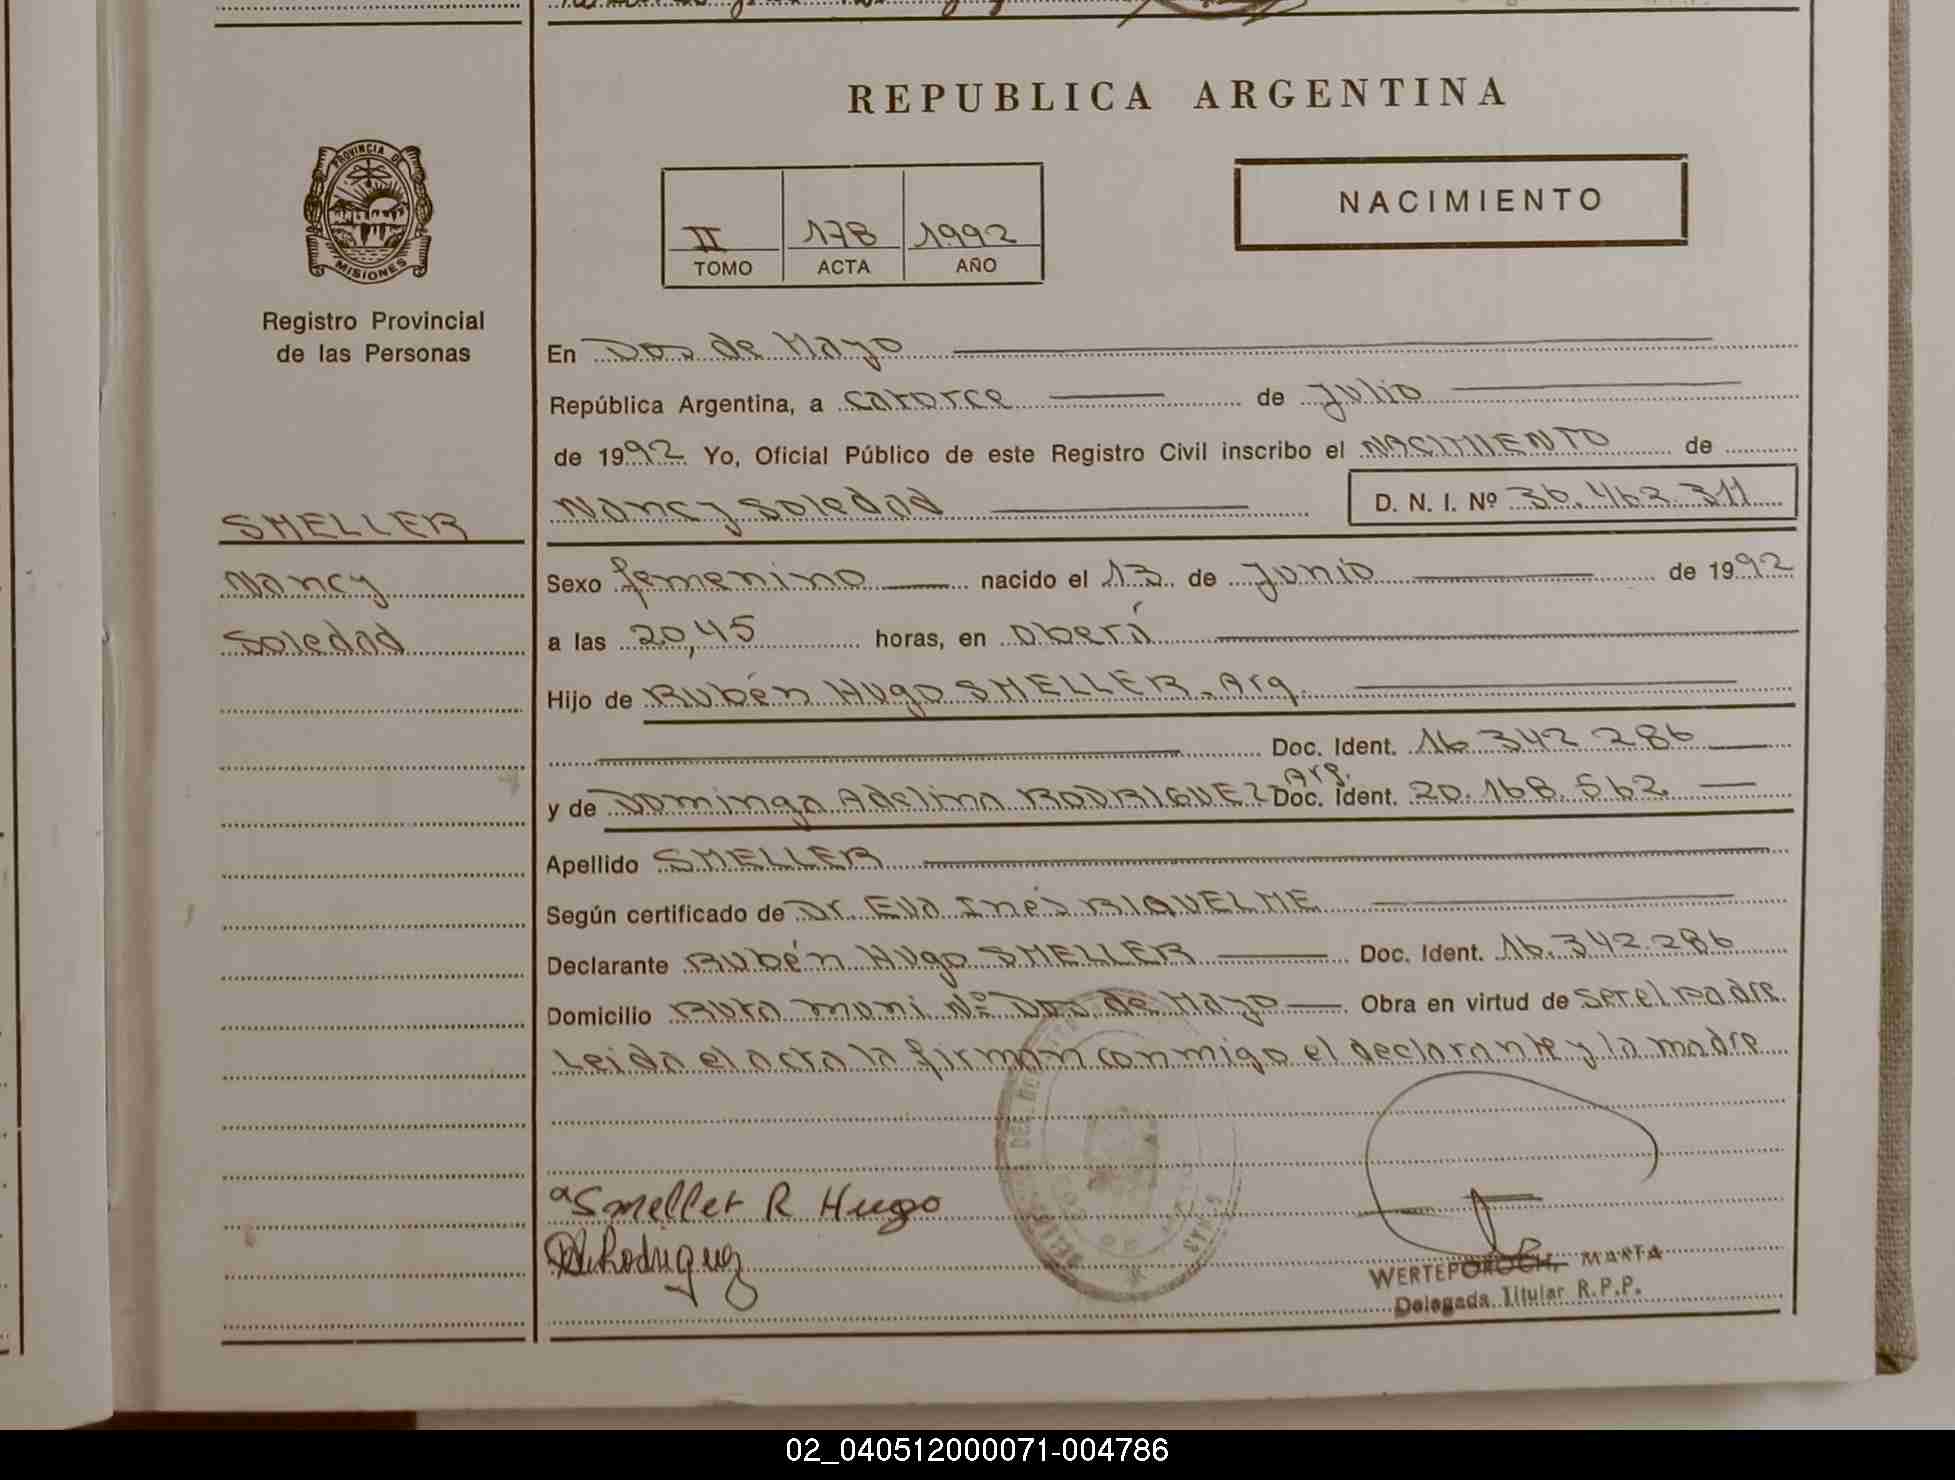 REPUBLICA ARGENTINA
PROVINCIA DE
MISIONES
Registro Provincial
de las Personas
II 178 1992
TOMO ACTA AÑO
NACIMIENTO
En Dos de Mayo
República Argentina, a catorce de Julio
de 1992 Yo, Oficial Público de este Registro Civil inscribo el NACIMIENTO de
Nancy Soledad D. N. I. Nº 36.463.311
SMELLER
Nancy
Soledad
Sexo femenino nacido el 13 de Junio de 1992
a las 20,45 horas, en Oberá
Hijo de Rubén Hugo SMELLER. Arg.
Doc. Ident. 16 342 286
Arg.
y de Dominga Adelina RODRIGUEZ Doc. Ident. 20.168.562.
Apellido SMELLER
Según certificado de Dr. Eva Inés RIQUELME
Declarante Rubén Hugo SMELLER Doc. Ident. 16.342.286
Domicilio Ruta muni Nº Dos de Mayo Obra en virtud de ser el padre.
Leida el acta la firman conmigo el declarante y la madre
Smeller R Hugo
Rodriguez
WERTEPOROCH, MARTA
Delegada Titular R.P.P.
02_040512000071-004786